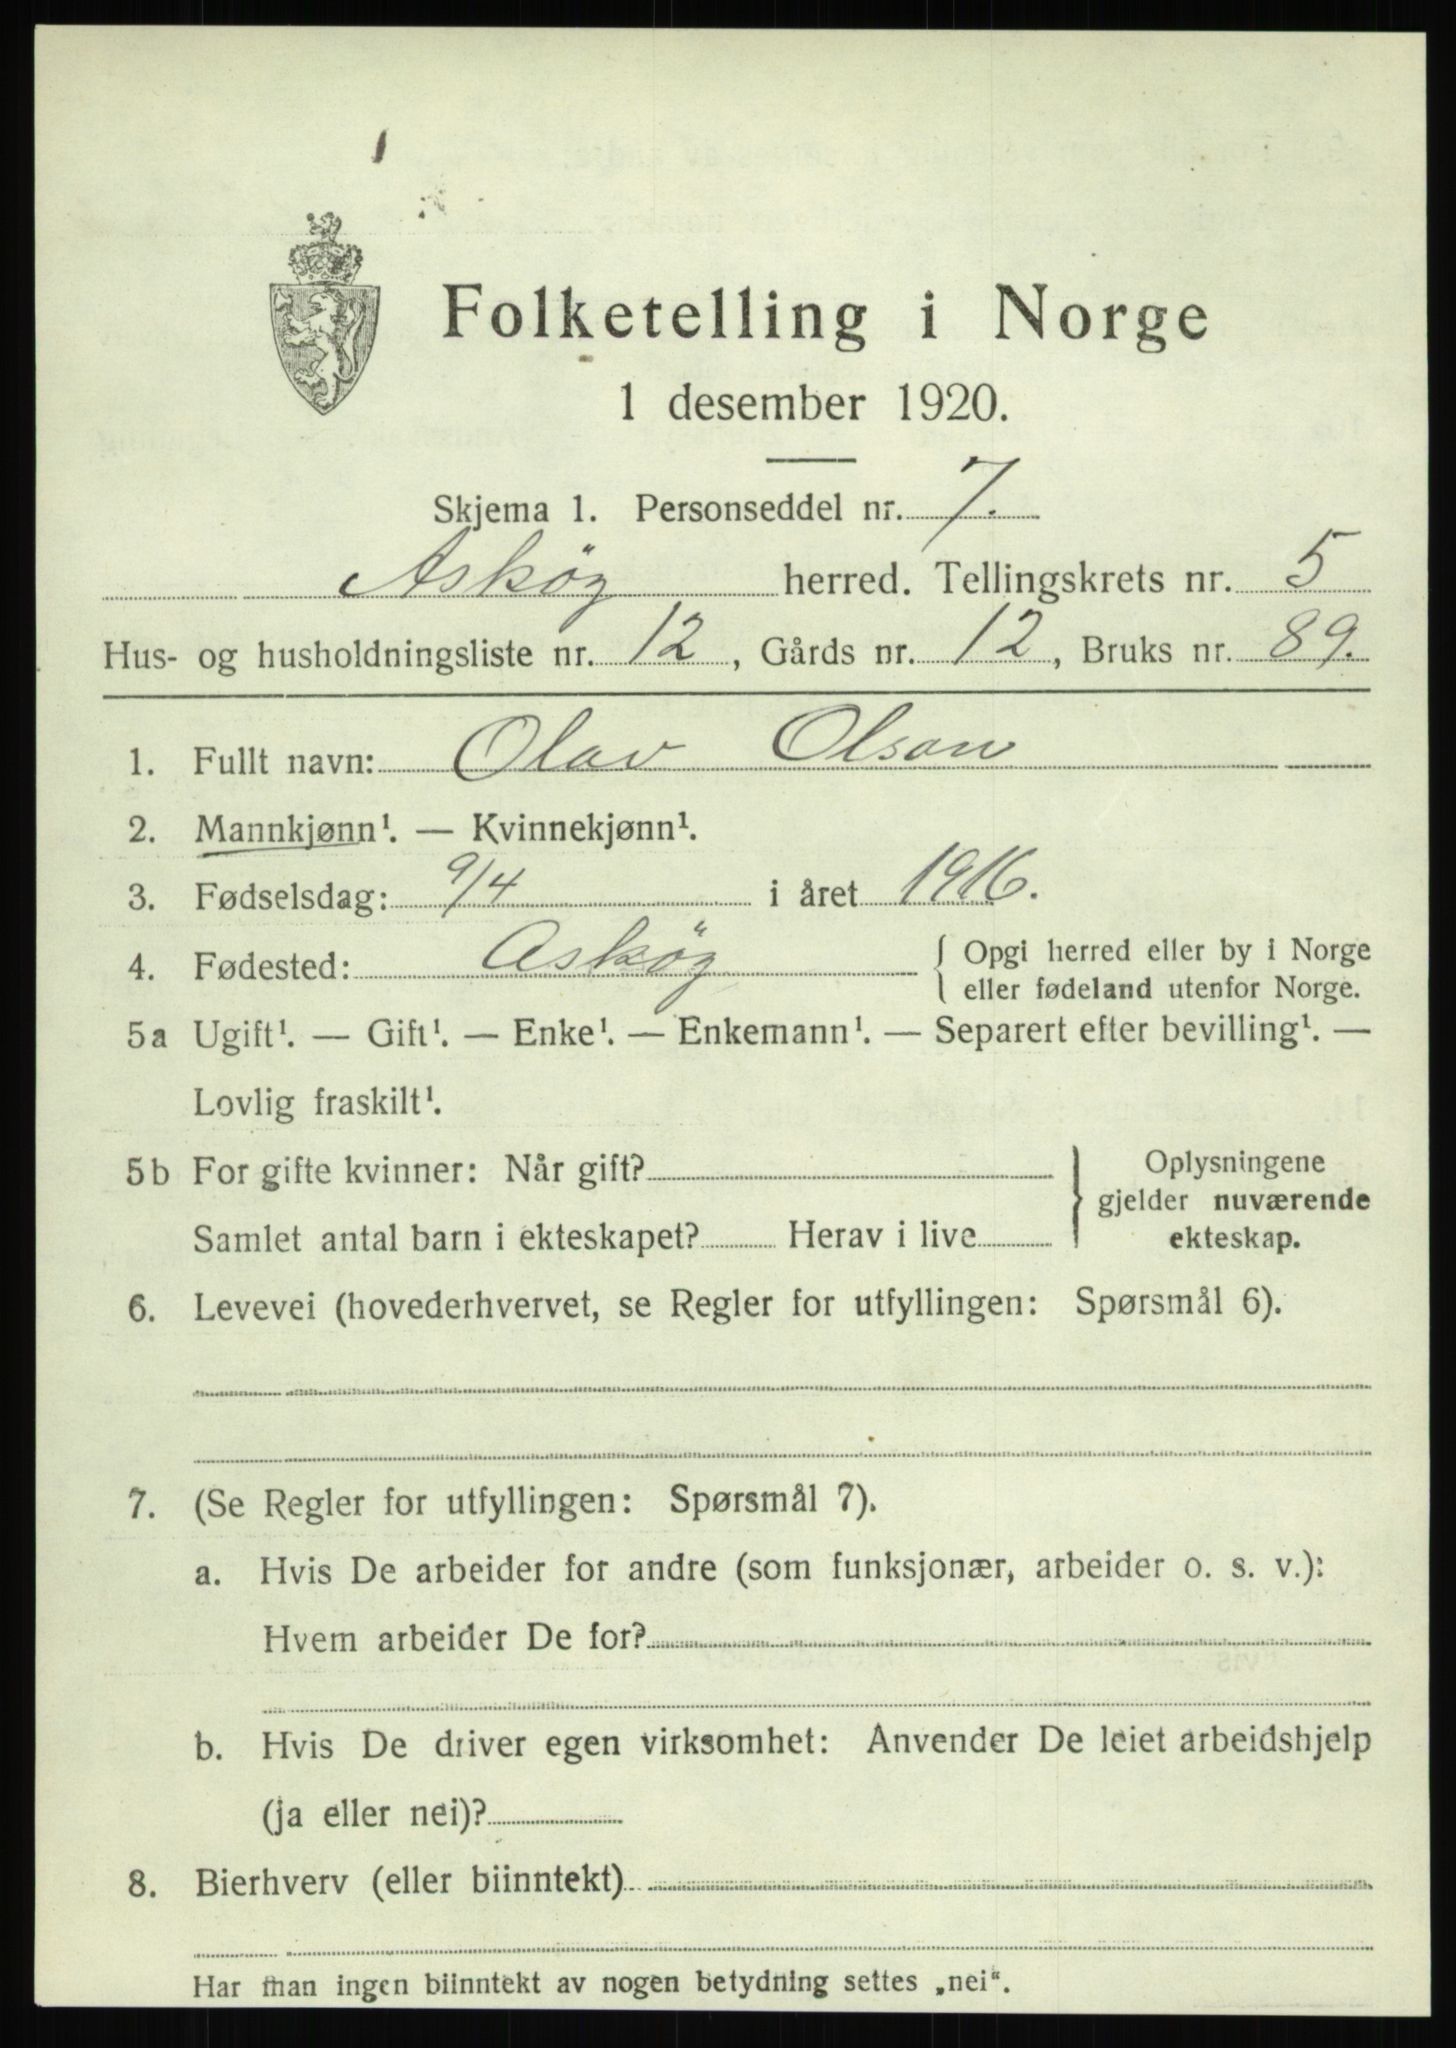 Folketelling i Norge
1 desember 1920.
Skjema 1. Personseddel nr. 7.
Asköy herred. Tellingskrets nr. 5
Hus- og husholdningsliste nr. 12, Gårds nr. 12, Bruks nr. 89.
1. Fullt navn: Olav Olsen
2. Mannkjønn¹. — Kvinnekjønn¹.
3. Fødselsdag: 9/4 i året 1916.
4. Fødested: Asköy { Opgi herred eller by i Norge
eller fødeland utenfor Norge.
5a Ugift¹. — Gift¹. — Enke¹. — Enkemann¹. — Separert efter bevilling¹. —
Lovlig fraskilt¹.
5b For gifte kvinner: Når gift? } Oplysningene
gjelder nuværende
Samlet antal barn i ekteskapet? Herav i live ekteskap.
6. Levevei (hovederhvervet, se Regler for utfyllingen: Spørsmål 6).
7. (Se Regler for utfyllingen: Spørsmål 7).
a. Hvis De arbeider for andre (som funksjonær, arbeider o. s. v.):
Hvem arbeider De for?
b. Hvis De driver egen virksomhet: Anvender De leiet arbeidshjelp
(ja eller nei)?
8. Bierhverv (eller biinntekt)
Har man ingen biinntekt av nogen betydning settes „nei“.